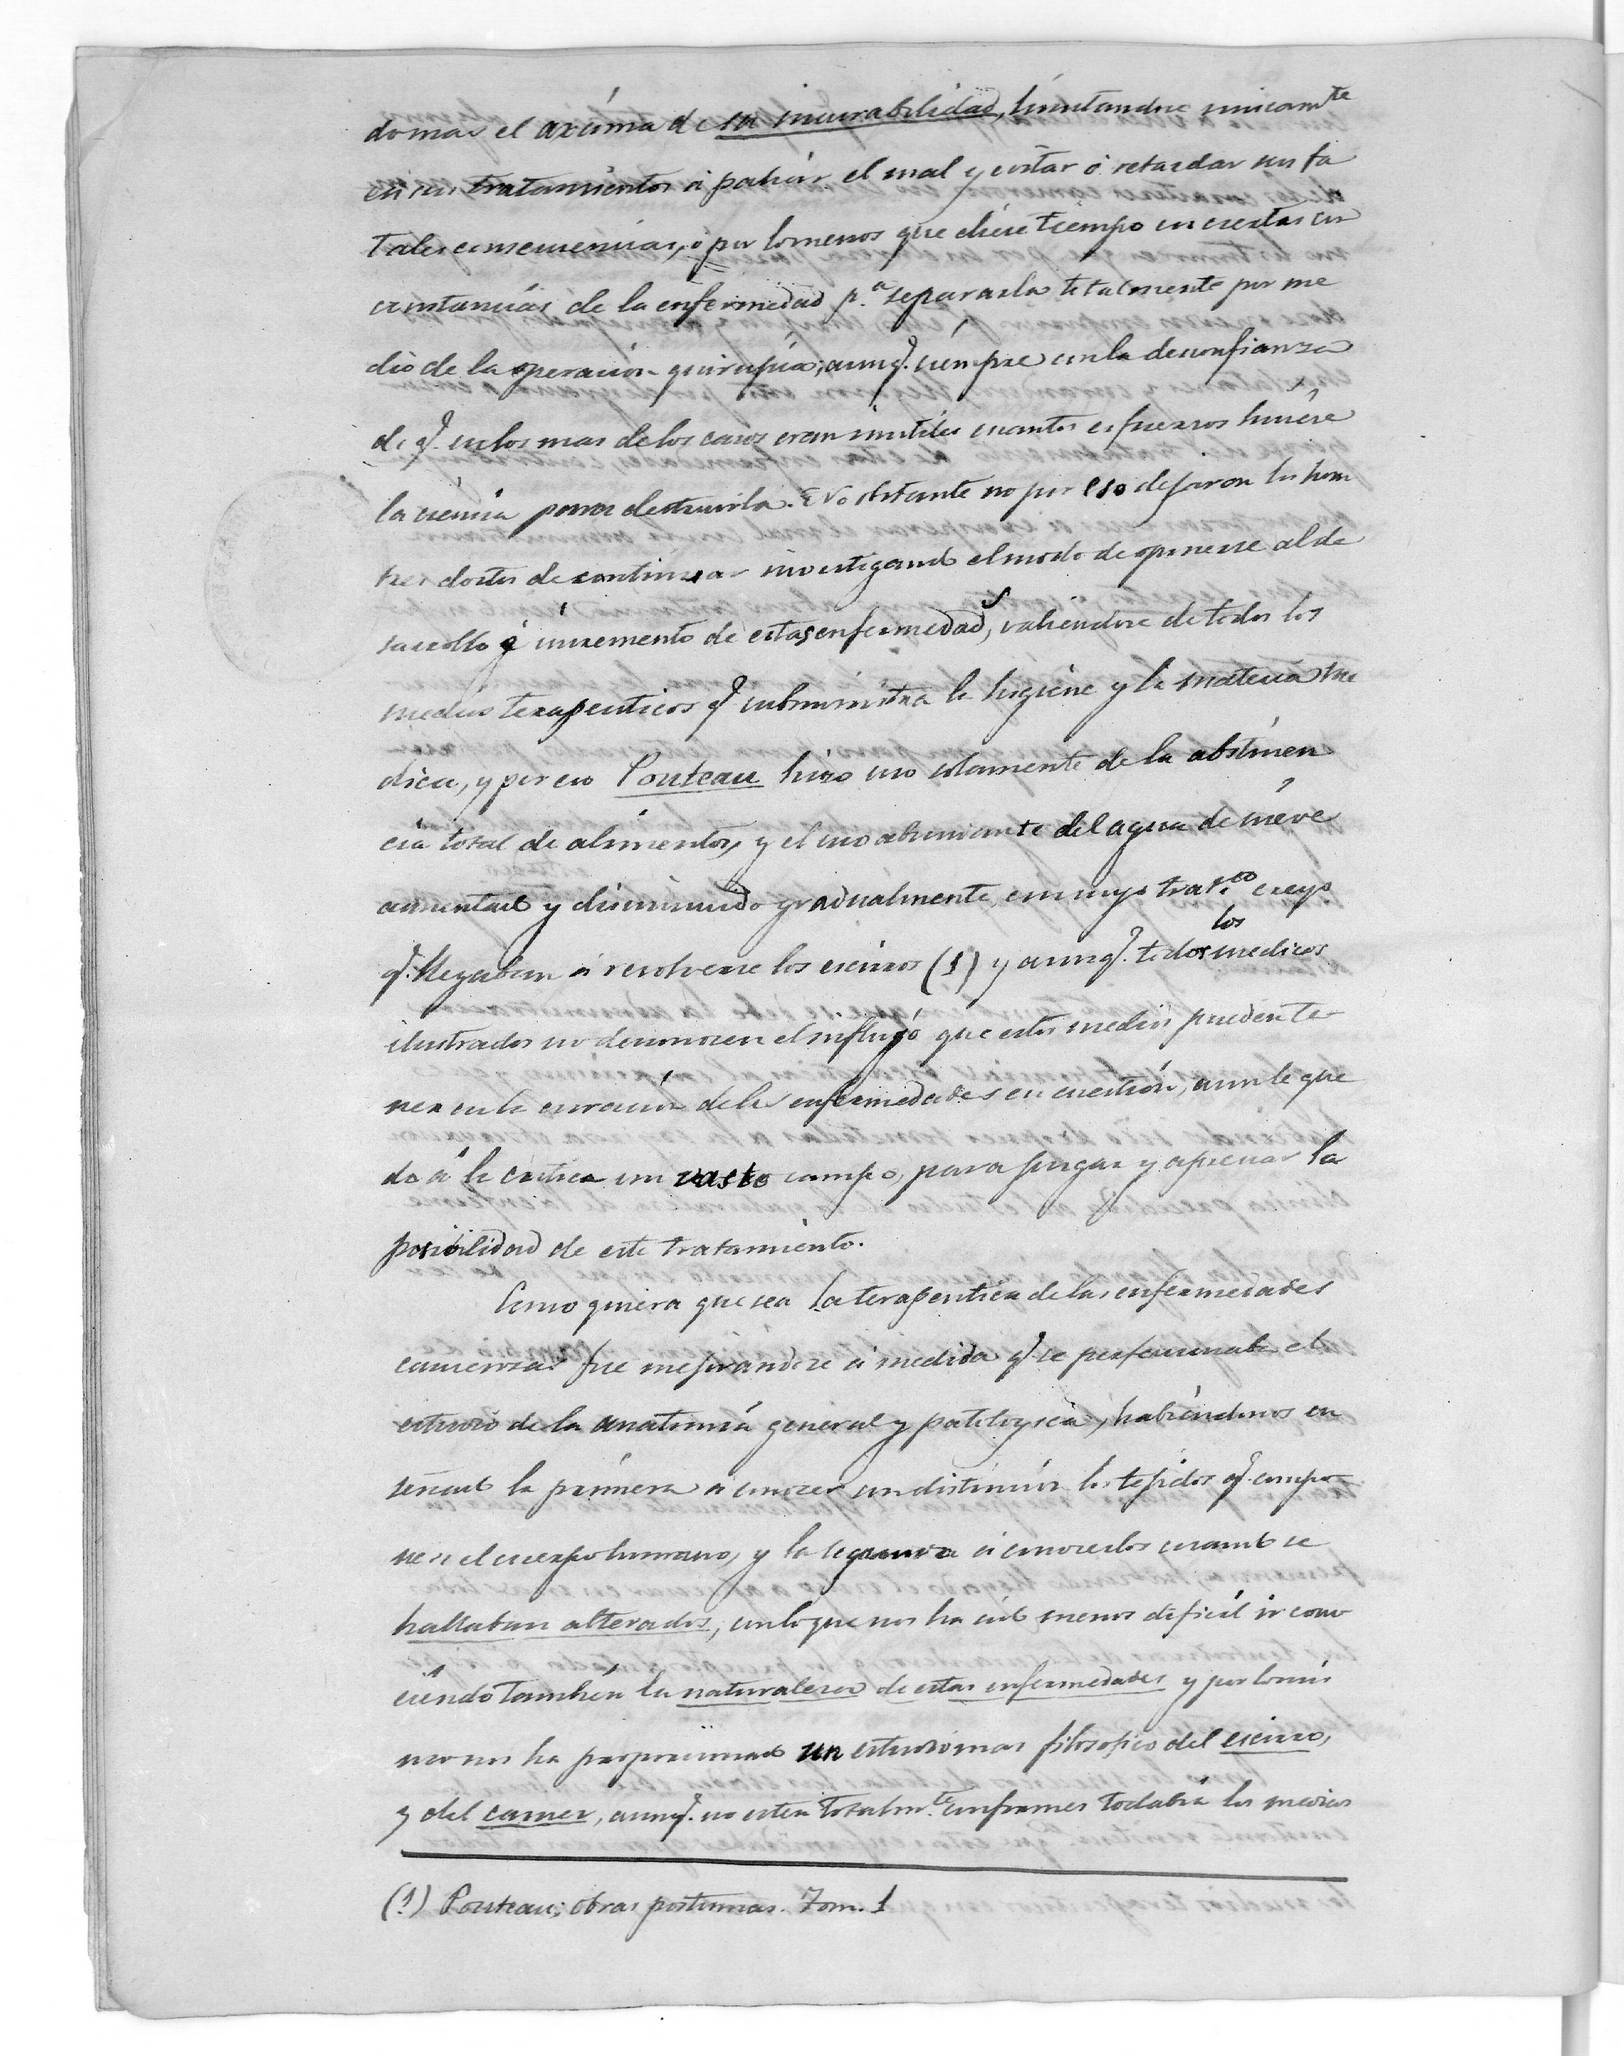 do mas el axíoma de su incurabilidad, limitandose unicamte
en sus tratamientos á paliar el mal y evitar ó retardar sus fa
tales consecuencias, ó por lo menos que diese tiempo en ciertas cir
cunstancias de la enfermedad p.a separarla totalmente por me
dio de la operacion quirúrjica; aunq.e siempre con la desconfianza
de q.e en los mas de los casos eran inutiles cuantos esfuerzos hiciese
la ciencia para destruirla. No obstante no por eso dejaron los hom
bres doctos de continuar investigando el modo de oponerse al de
sarrollo é incremento de estas enfermedads, valiendose de todos los
medios terapeuticos q.e subministra la higiene y la materia me
dica, y por eso Pouteau hizo uso solamente de la abstinen
cia total de alimentos, y el uso abundante del agua de nieve
aumentado y disminuido gradualmente, con cuyo trat.to creyo
q.e llegaban á resolverse los escirros (1) y aunq.e todos los medicos
ilustrados no desconocen el influjó que estos medios pueden te-
ner en la curacion de las enfermedades en cuestión, aun le que
da á la critica un vasto campo, para juzgar y apreciar la
posibilidad de este tratamiento.
Como quiera que sea la terapeutica de las enfermedades
cancerozas fue mejorandose á medida q.e se perfeccionaba el
estudio de la anatomía general y patologica, habiéndonos en
señado la primera á conocer con distincion los tejidos q.e compo
nen el cuerpo humano, y la segunda á conocerlos cuando se
hallaban alterados, con lo que nos ha sido menos dificil ir cono
ciendo tambien la naturaleza de estas enfermedades y por lo mis
mo nos ha proporcionado un estudio mas filosofico del escirro,
y del cancer, aunq.e no esten totalm.te conformes todabia los medicos
(1) Pouteau; obras postumas. Tom. 1